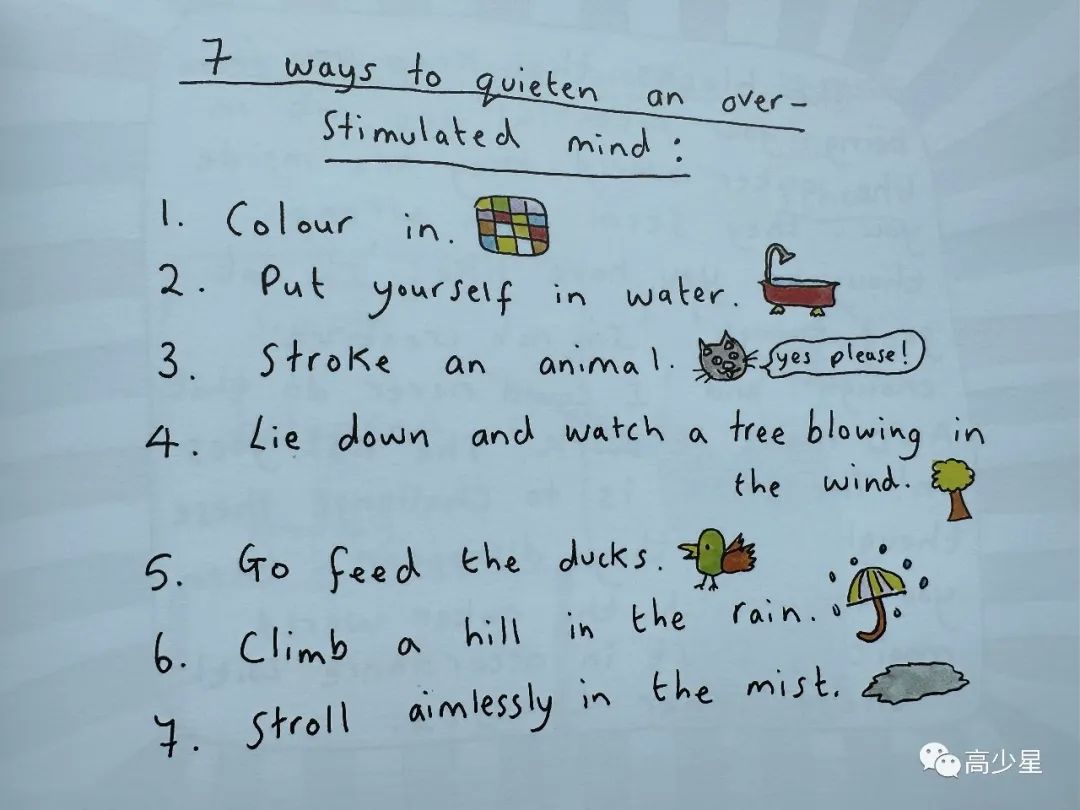 7 ways to quieten an over-
Stimulated mind:
1. Colour in.
2. Put yourself in water.
3. Stroke an animal. yes please!
4. Lie down and watch a tree blowing in
the wind.
5. Go feed the ducks.
6. Climb a hill in the rain.
7. Stroll aimlessly in the mist.
高少星